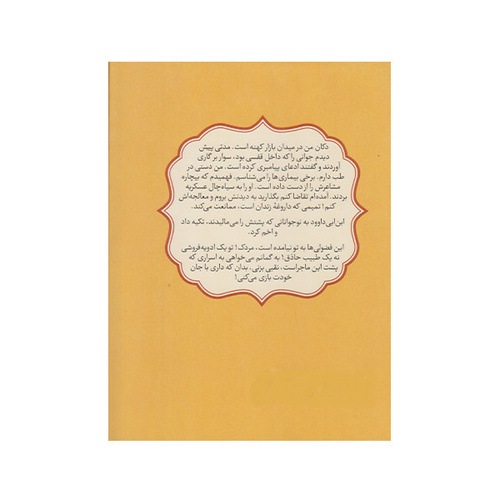 دکان من در میدان بازار کهنه است. مدتی پیش
دیدم جوانی را که داخل قفسی بود، سوار بر گاری
آوردند و گفتند ادعای پیامبری کرده است. من دستی در
طب دارم. برخی بیماری‌ها را می‌شناسم. فهمیدم که بیچاره
مشاعرش را از دست داده است. او را به سیاه‌چال عسکریه
بردند. آمده‌ام تقاضا کنم بگذارید به دیدنش بروم و معالجه‌اش
کنم! تمیمی که داروغهٔ زندان است، ممانعت می‌کند.
ابن‌ابی‌داوود به نوجوانانی که پشتش را می‌مالیدند، تکیه داد
و اخم کرد.
این فضولی‌ها به تو نیامده است، مردک! تو یک ادویه‌فروشی
نه یک طبیب حاذق! به گمانم می‌خواهی به اسراری که
پشت این ماجراست، نقبی بزنی. بدان که داری با جان
خودت بازی می‌کنی!